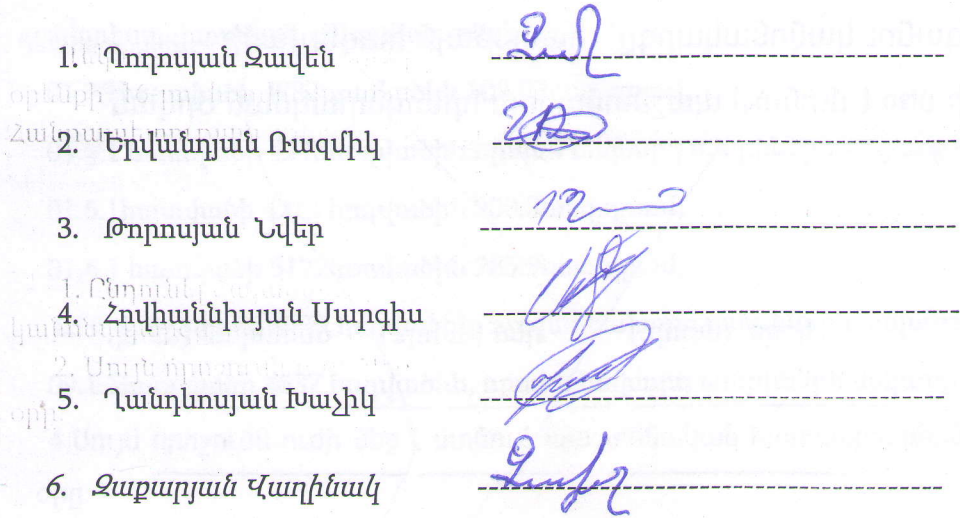 1. Պողոսյան Զավեն
2. Երվանդյան Ռազմիկ
3. Թորոսյան Նվեր
4. Հովհաննիսյան Սարգիս
5. Ղանդևոսյան Խաչիկ
6. Զաքարյան Վաղինակ